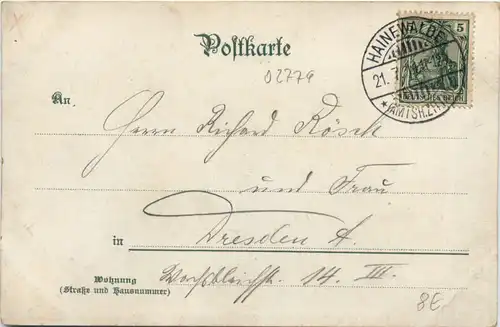 Postkarte
5
HAINEWALDE
21.7.
* (AMTSH.ZITTAU)
02779
An.
Herrn Richard Rösch
und Frau
in Dresden A.
Wohnung
(Straße und Hausnummer)
Wachsbleichstr. 14. III.
8E